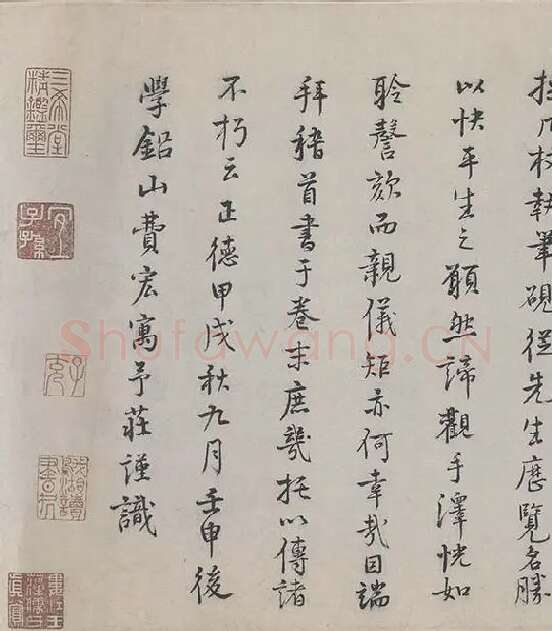 几杖執筆硯從先生歷覽名勝
以快平生之願然諦觀手澤恍如
聆謦欬而親儀矩亦何幸哉因端
拜稽首書于卷末庶幾托以傳諸
不朽云正德甲戌秋九月壬申後
學鉛山費宏寓予莊謹識
三希堂精鑑璽
宜子孫
Shufawang.CN